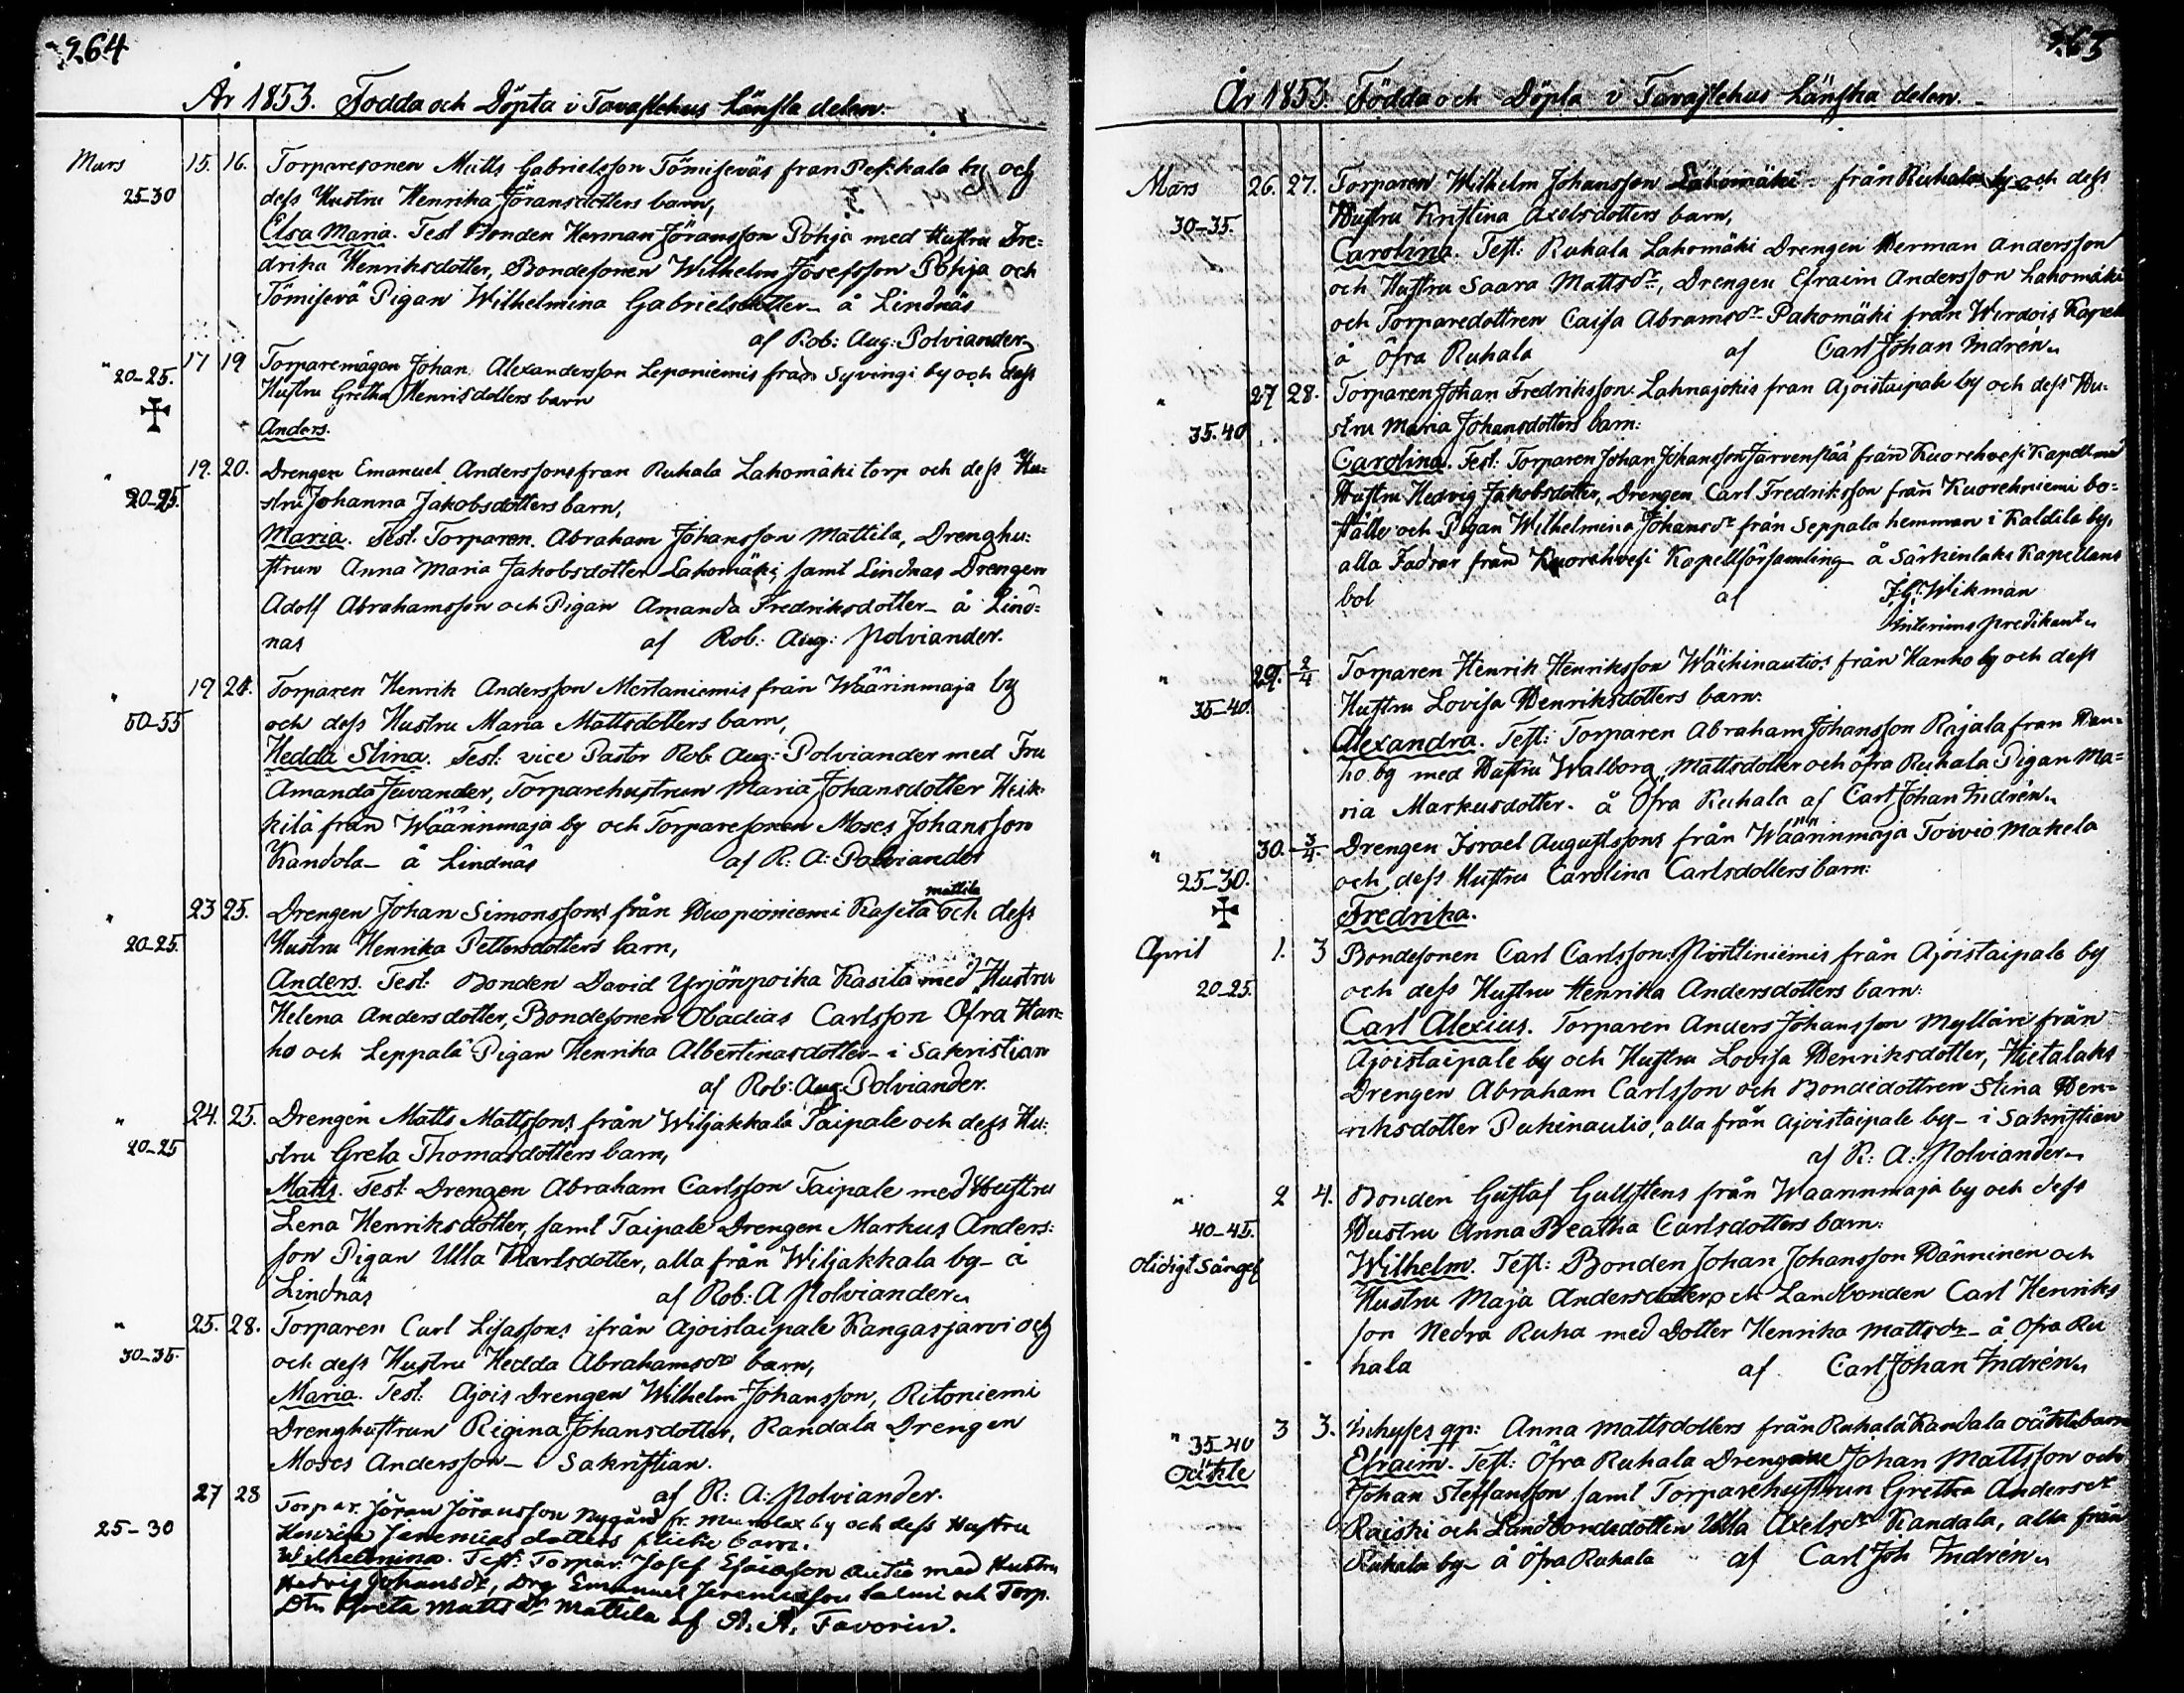 264
År 1853. Födda och Döpta i Tavastehus Länska delen.
Mars 15. 16. Torparesonen Matts Gabrielsson Tömiseväs från Pekkala by och
25-30 dess Hustru Henrika Jöransdotters barn,
Elsa Maria. Test Bonden Herman Jöransson Pohja med Hustru Fre-
drika Henriksdotter, Bondesonen Wilhelm Josefsson Pohja och
Tömisevä Pigan Wilhelmina Gabrielsdotter - å Lindnäs
af Rob: Aug: Polviander
" 17 19 Torparemågen Johan Alexandersson Leponiemis från Syvingi by och dess
20-25. Hustru Gretha Henrisdotters barn
Anders.
" 19. 20. Drengen Emanuel Anderssons från Ruhala Lahomäki torp och dess Hu-
20-25. stru Johanna Jakobsdotters barn,
Maria. Test. Torparen Abraham Johansson Mattila, Drenghu-
strun Anna Maria Jakobsdotter Lahomäki, samt Lindnäs Drengen
Adolf Abrahamsson och Pigan Amanda Fredriksdotter - å Lind-
näs af Rob: Aug: Polviander.
" 19 20. Torparen Henrik Andersson Mertaniemis från Wäärinmaja by
50-55 och dess Hustru Maria Mattsdotters barn,
Hedda Stina. Test: vice Pastor Rob Aug: Polviander med Fru
Amanda, Torparehustrun Maria Johansdotter Heik-
kilä från Wäärinmaja by och Torparesonen Moses Johansson
Kandola - å Lindnäs af R: A: Polviander
mattila
" 23 25. Drengen Johan Simonssons från Kasila och dess
20-25. Hustru Henrika Pettersdotters barn,
Anders. Test: Bonden David Yrjönpoika Kasila med Hustru
Helena Andersdotter, Bondesonen Obadias Carlsson Öfra Han-
ho och Leppälä Pigan Henrika Albertinasdotter - i Sakristian
af Rob: Aug: Polviander.
" 24. 25. Drengen Matts Mattssons från Wiljakkala Taipale och dess Hu-
20-25 stru Greta Thomasdotters barn,
Matts. Test: Drengen Abraham Carlsson Taipale med Hustru
Lena Henriksdotter, samt Taipale Drengen Markus Anders-
son Pigan Ulla Karlsdotter, alla från Wiljakkala by - å
Lindnäs af Rob: A Polviander
" 25. 28. Torparen Carl Lisassons ifrån Ajoistaipale Kangasjärvi och
30-35. och dess Hustru Hedda Abrahamsdr barn,
Maria. Test: Ajois Drengen Wilhelm Johansson, Ritoniemi
Drenghustrun Regina Johansdotter, Randala Drengen
Moses Andersson - i Sakristian.
af R: A: Polviander.
27 28 Torpar. Jöran Jöransson Nygård fr. Murolax by och dess Hustru
25-30 Henrica Jeremias dotters flicke barn.
Wilhelmina. Test: Torpar. Josef Esaiasson Autio med Hustru
Hedvig Johansdr, Drg Emanuel Jeremiasson Salmi och Torp.
Dtr Greta Mattsdr Mattila af A. A. Favorin.
265
År 1853. Födda och Döpta i Tavastehus Länska delen.
Mars 26. 27. Torparen Wilhelm Johansson Lahomäki från Ruhala by och dess
30-35. Hustru Kristina Axelsdotters barn,
Carolina. Test: Ruhala Lahomäki Drengen Herman Andersson
och Hustru Saara Mattsdr, Drengen Efraim Andersson Lahomäki
och Torparedottren Caisa Abramsdr Pakomäki från Wirdois Kapell
å Öfra Ruhala af Carl Johan Indrén
" 27 28. Torparen Johan Fredriksson Lahnajokis från Ajoistaipale by och dess Hu-
35.40 stru Maria Johansdotters barn:
Carolina. Test: Torparen Johan Johansson Järvenpää från Kuorehvesi Kapell med
Hustru Hedvig Jakobsdotter, Drengen Carl Fredriksson från Kuorehniemi bo-
ställe och Pigan Wilhelmina Johansdr från Seppälä hemman i Kaldila by,
alla Fadrar från Kuorehvesi Kapellförsamling - å Särkinlaks Kapellans
bol af Wikman
Interims predikant
" 29. 2/4 Torparen Henrik Henriksson Wäihinautios från Hanho by och dess
35-40. Hustru Lovisa Henriksdotters barn:
Alexandra. Test: Torparen Abraham Johansson Rajala från Han-
ho by med Hustru Walborg Mattsdotter och öfra Ruhala Pigan Ma-
ria Markusdotter. å Öfra Ruhala af Carl Johan Indrén
" 30. 3/4. Drengen Israel Augustssons från Wäärinmaja Toivio Makela
25-30. och dess Hustru Carolina Carlsdotters barn:
Fredrika.
April 1. 3 Bondesonen Carl Carlssons från Ajoistaipale by
20-25. och dess Hustru Henrika Andersdotters barn:
Carl Alexius. Torparen Anders Johansson Mylläri från
Ajoistaipale by och Hustru Lovisa Henriksdotter, Hietalaks
Drengen Abraham Carlsson och Bondedottren Stina Hen-
riksdotter Pukinautio, alla från Ajoistaipale by - i Sakristian
af R: A: Polviander
" 2 4. Bonden Gustaf Gullstens från Waarinmaja by och dess
40-45. Hustru Anna Beatha Carlsdotters barn:
Olidigt Sängef Wilhelm. Test: Bonden Johan Johansson Hänninen och
Hustru Maja Andersdotter och Landbonden Carl Henriks
son Nedra Ruha med Dotter Henrika Mattsdr - å Öfra Ru
hala af Carl Johan Indrén
" 3 3. Inhyses qp: Anna Mattsdotters från Ruhala Kandala oäkta barn
35-40 Efraim. Test: Öfra Ruhala Drengarne Johan Mattsson och
Oäkta Johan Steffansson samt Torparehustrun Gretha Andersdr
Raiski och Landbondedottern Ulla Axelsdr Kandala, alla från
Ruhala by - å Öfra Ruhala af Carl Joh Indrén